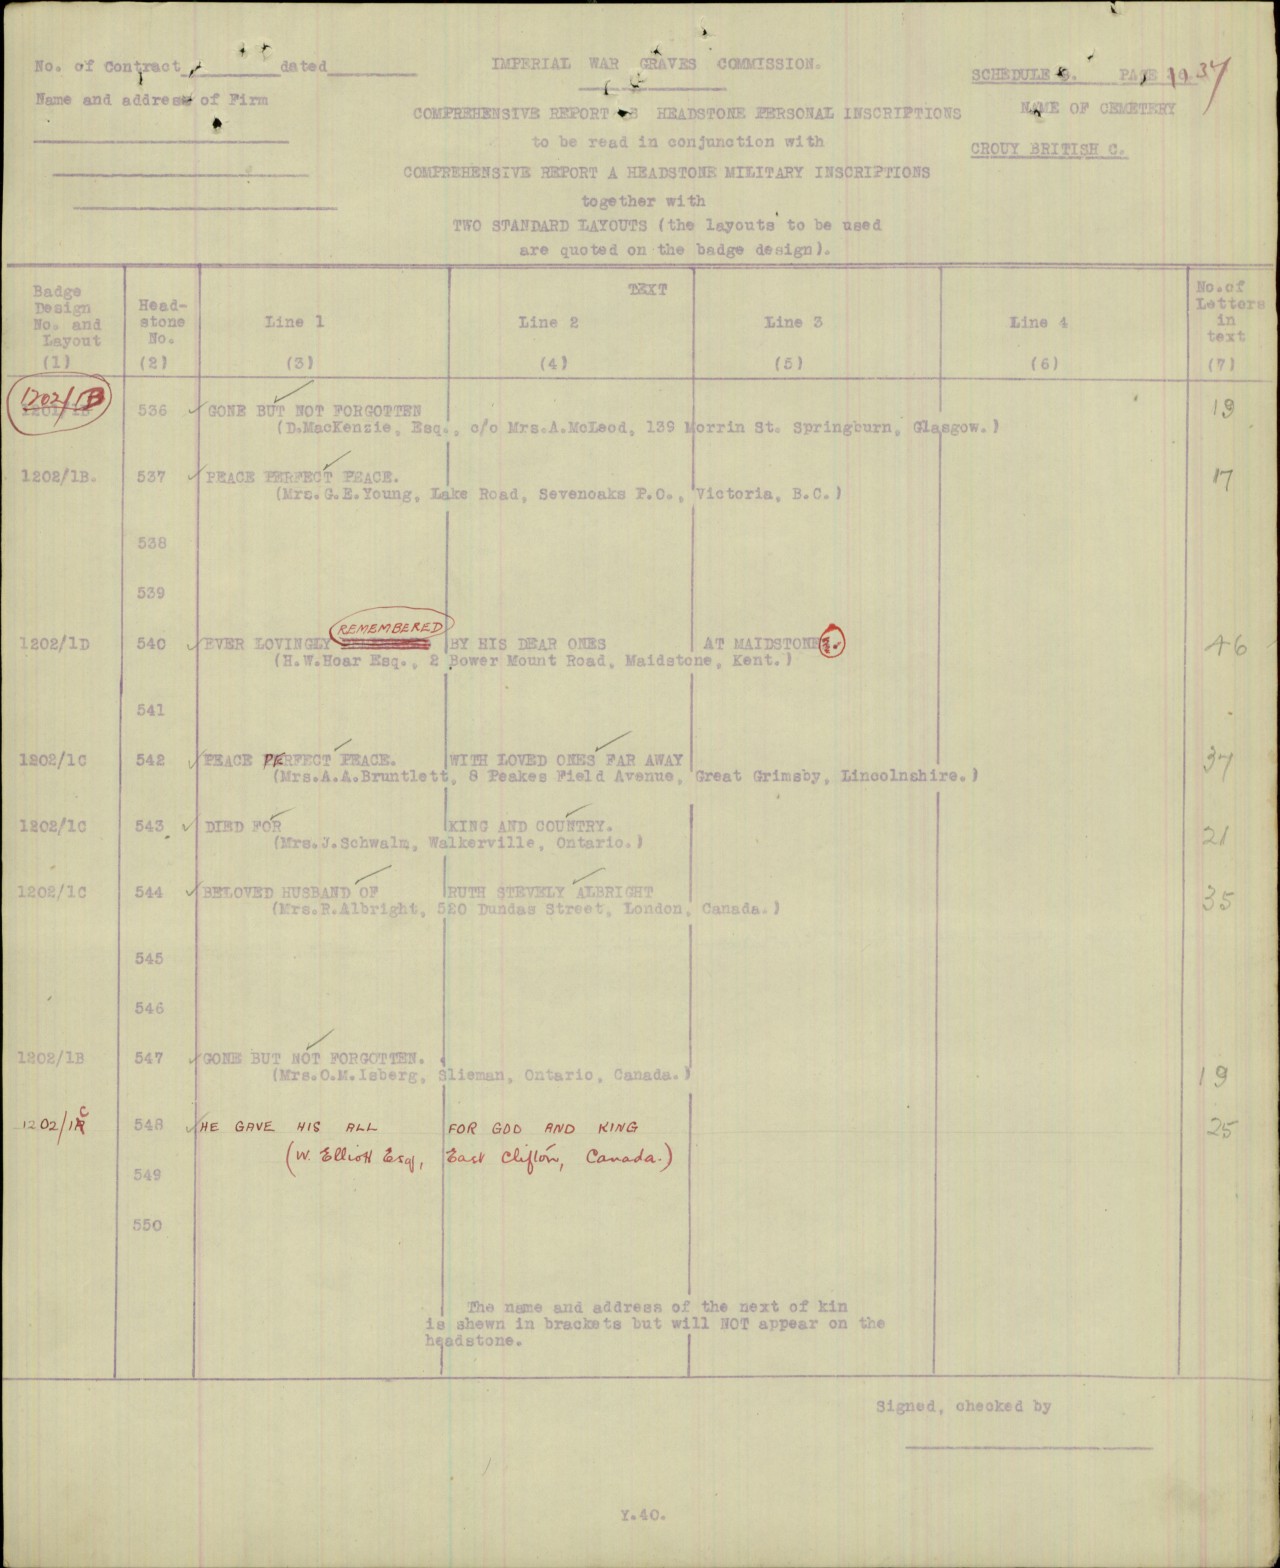 No. of Contract dated
Name and address of Firm
IMPERIAL WAR GRAVES COMMISSION.
COMPREHENSIVE REPORT HEADSTONE PERSONAL INSCRIPTIONS
to be read in conjunction with
COMPREHENSIVE REPORT A HEADSTONE MILITARY INSCRIPTIONS
together with
TWO STANDARD LAYOUTS (the layouts to be used
are quoted on the badge design).
SCHEDULE PAGE 37
NAME OF CEMETERY
CROUY BRITISH C.
Badge Design No. and Layout (1)
Head-stone No. (2)
TEXT
Line 1 (3)
Line 2 (4)
Line 3 (5)
Line 4 (6)
No. of Letters in text (7)
1202/1B 536 GONE BUT NOT FORGOTTEN 19
(D.MacKenzie, Esq., c/o Mrs.A.McLeod, 139 Morrin St. Springburn, Glasgow.)
1202/1B. 537 PEACE PERFECT PEACE. 17
(Mrs.G.E.Young, Lake Road, Sevenoaks P.O., Victoria, B.C.)
538
539
1202/1D 540 EVER LOVINGLY REMEMBERED BY HIS DEAR ONES AT MAIDSTONE 46
(H.W.Hoar Esq., 2 Bower Mount Road, Maidstone, Kent.)
541
1202/1C 542 PEACE PERFECT PEACE. WITH LOVED ONES FAR AWAY 37
(Mrs.A.A.Bruntlett, 8 Peakes Field Avenue, Great Grimsby, Lincolnshire.)
1202/1C 543 DIED FOR KING AND COUNTRY. 21
(Mrs.J.Schwalm, Walkerville, Ontario.)
1202/1C 544 BELOVED HUSBAND OF RUTH STEVELY ALBRIGHT 35
(Mrs.R.Albright, 520 Dundas Street, London, Canada.)
545
546
1202/1B 547 GONE BUT NOT FORGOTTEN. 19
(Mrs.O.M.Isberg, Slieman, Ontario, Canada.)
1202/1C 548 HE GAVE HIS ALL FOR GOD AND KING 25
(W. Elliott Esq, East Clifton, Canada.)
549
550
The name and address of the next of kin
is shewn in brackets but will NOT appear on the
headstone.
Signed, checked by
Y.40.